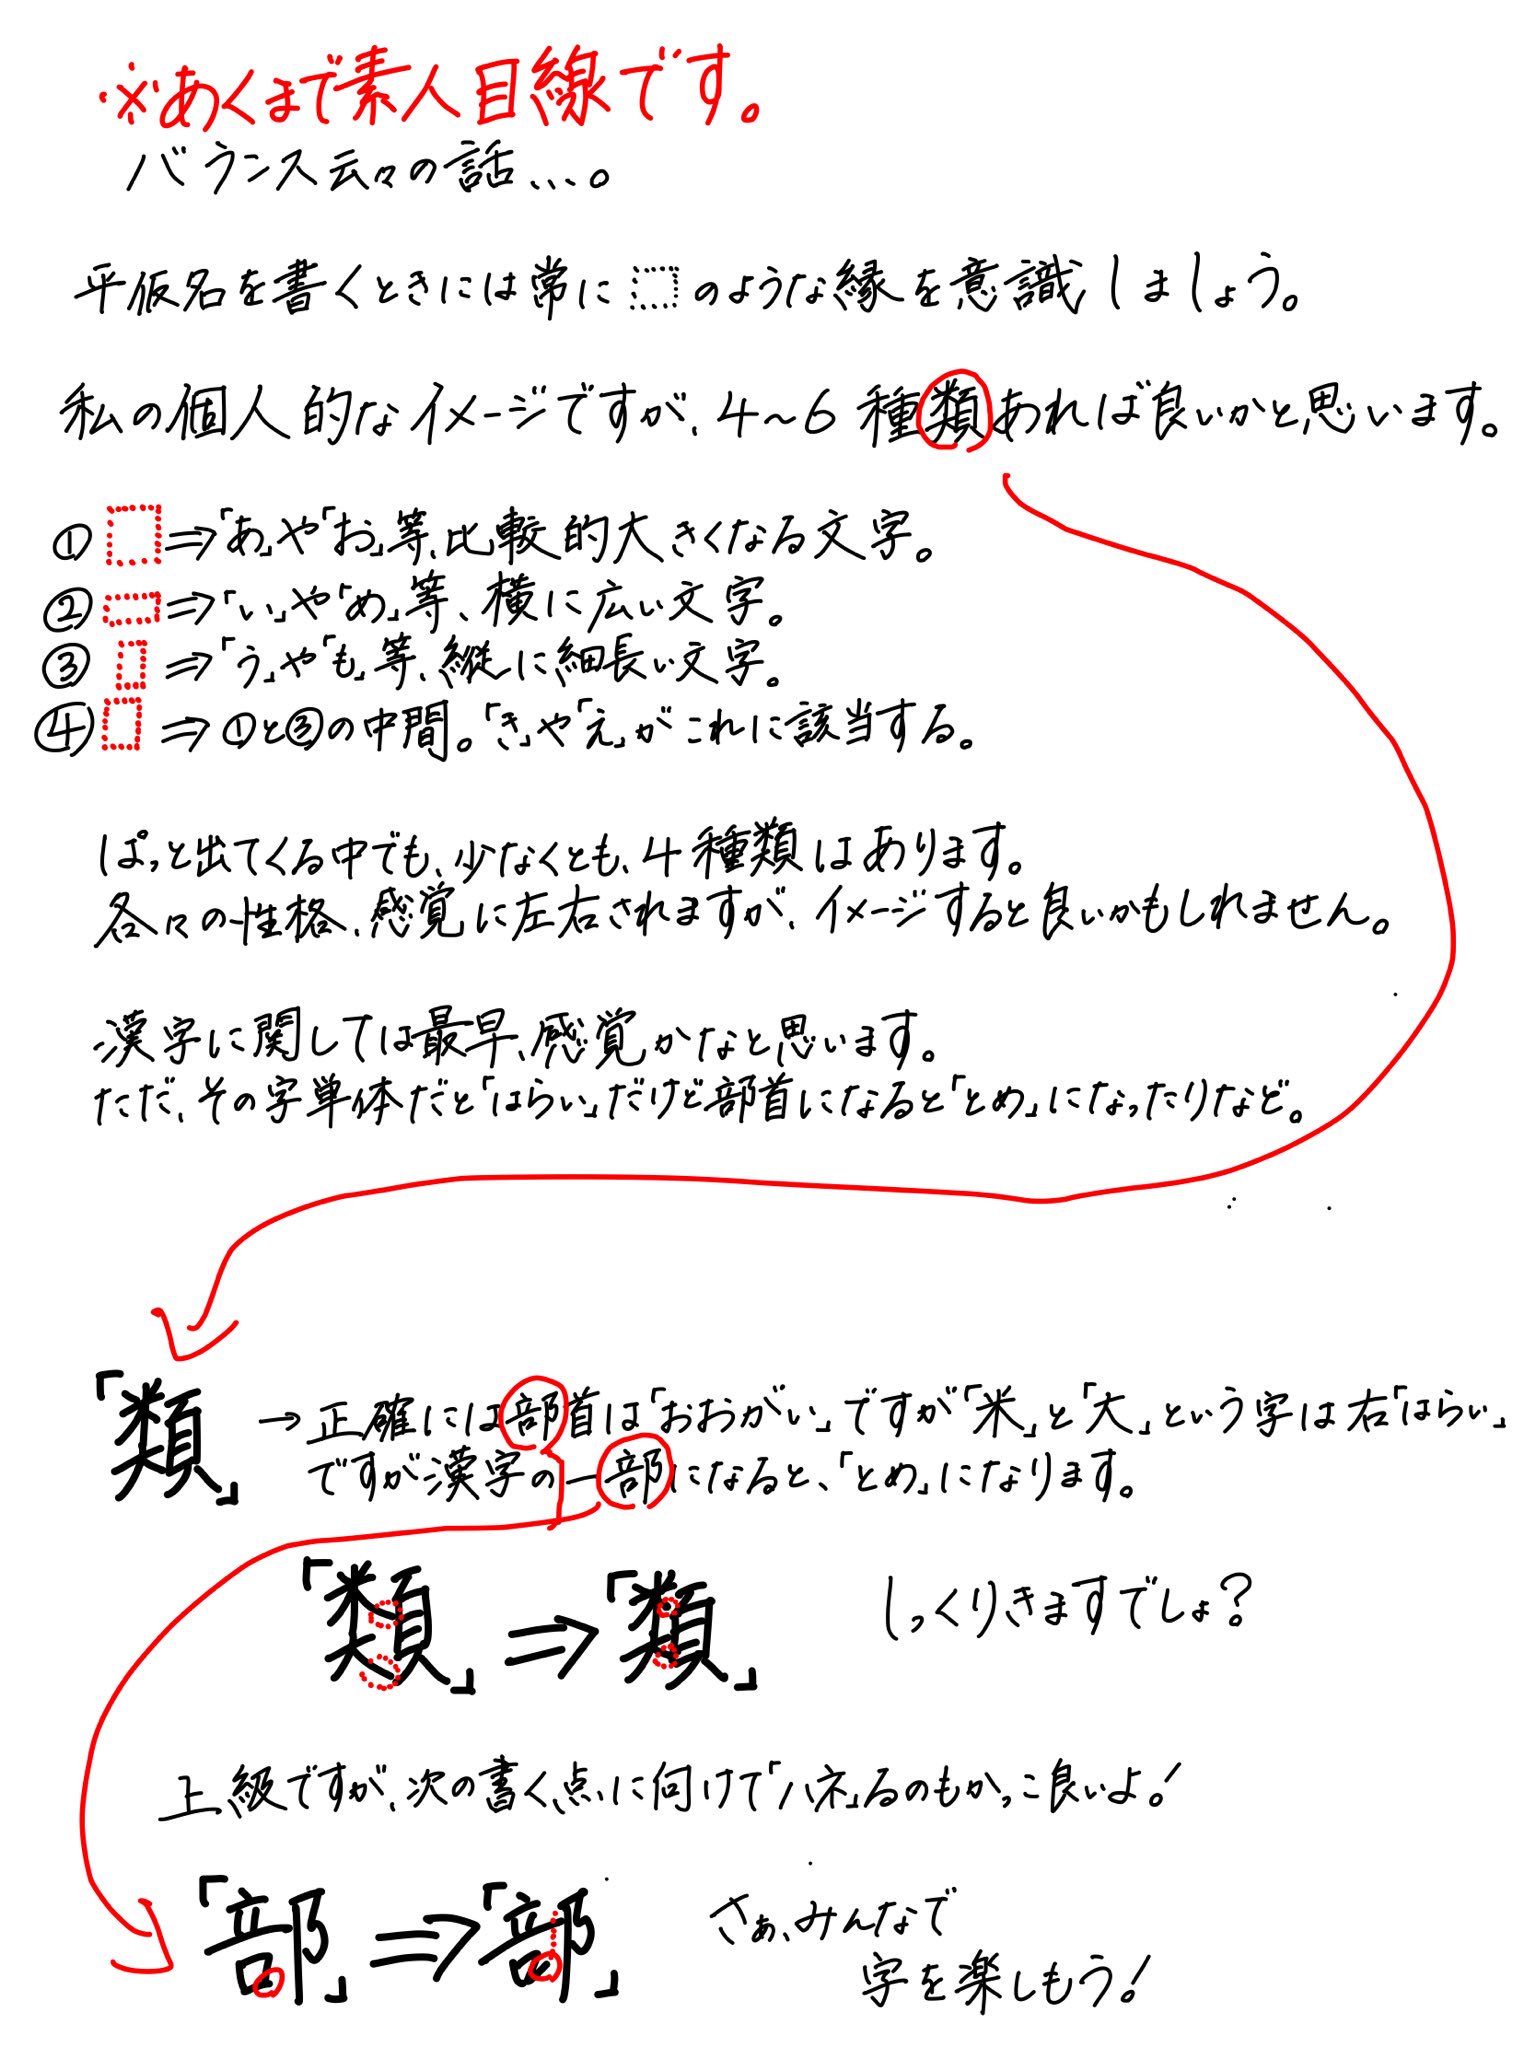 ※あくまで素人目線です。
バランス云々の話…。
平仮名を書くときには常に□のような縁を意識しましょう。
私の個人的なイメージですが、4〜6種類あれば良いかと思います。
①□⇒「あ」や「お」等、比較的大きくなる文字。
②▭⇒「い」や「め」等、横に広い文字。
③▯⇒「う」や「も」等、縦に細長い文字。
④▯⇒①と③の中間。「き」や「え」がこれに該当する。
ぱっと出てくる中でも、少なくとも、4種類はあります。
各々の性格、感覚に左右されますが、イメージすると良いかもしれません。
漢字に関しては最早、感覚かなと思います。
ただ、その字単体だと「はらい」だけど部首になると「とめ」になったりなど。
「類」→正確には部首は「おおがい」ですが「米」と「大」という字は右「はらい」
ですが漢字の一部になると、「とめ」になります。
「類」⇒「類」 しっくりきますでしょ？
上級ですが、次の書く点に向けて「ハネ」るのもかっこ良いよ！
「部」⇒「部」 さぁ、みんなで
字を楽しもう！